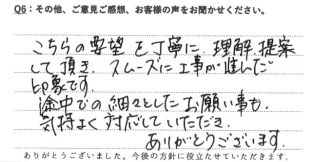 Q6：その他、ご意見ご感想、お客様の声をお聞かせください。
こちらの要望を丁寧に理解、提案
して頂き、スムーズに工事が進んだ
印象です。
途中での細々としたお願い事も、
気持よく対応していただき
ありがとうございます。
ありがとうございました。今後の方針に役立たせていただきます。